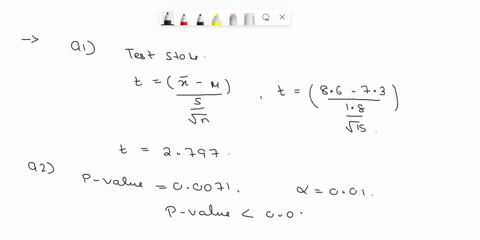 → a1) Test stat.
t = (x̄ - μ) / (s / √n) , t = (8.6 - 7.3) / (1.8 / √15)
t = 2.797.
a2) P-value = 0.0071. α = 0.01.
P-value < 0.0